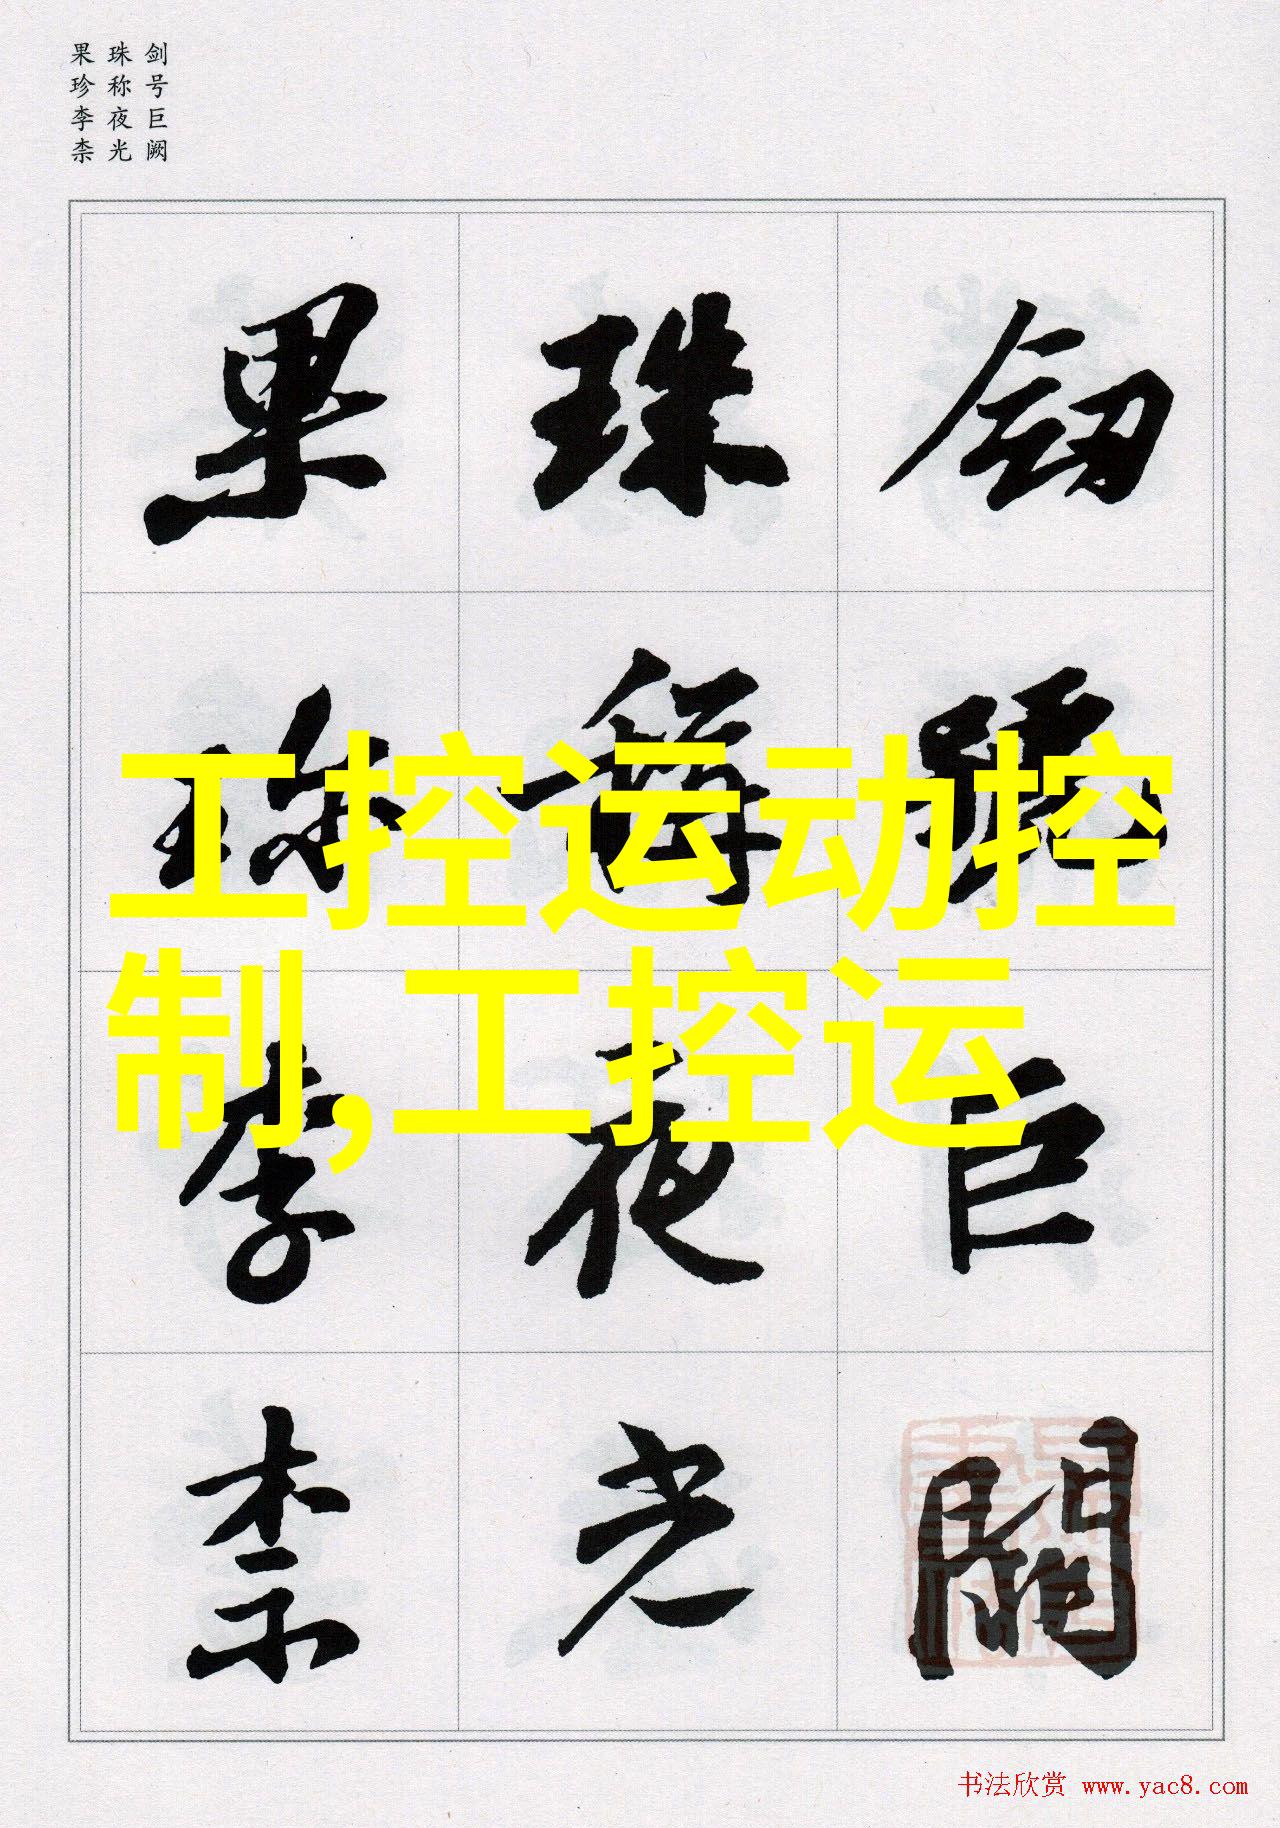 剑号巨阙
珠称夜光
果珍李柰
釼號巨闕
珠稱夜光
果珍李柰
工控运动控
制,工控运
书法欣赏 www.yac8.com